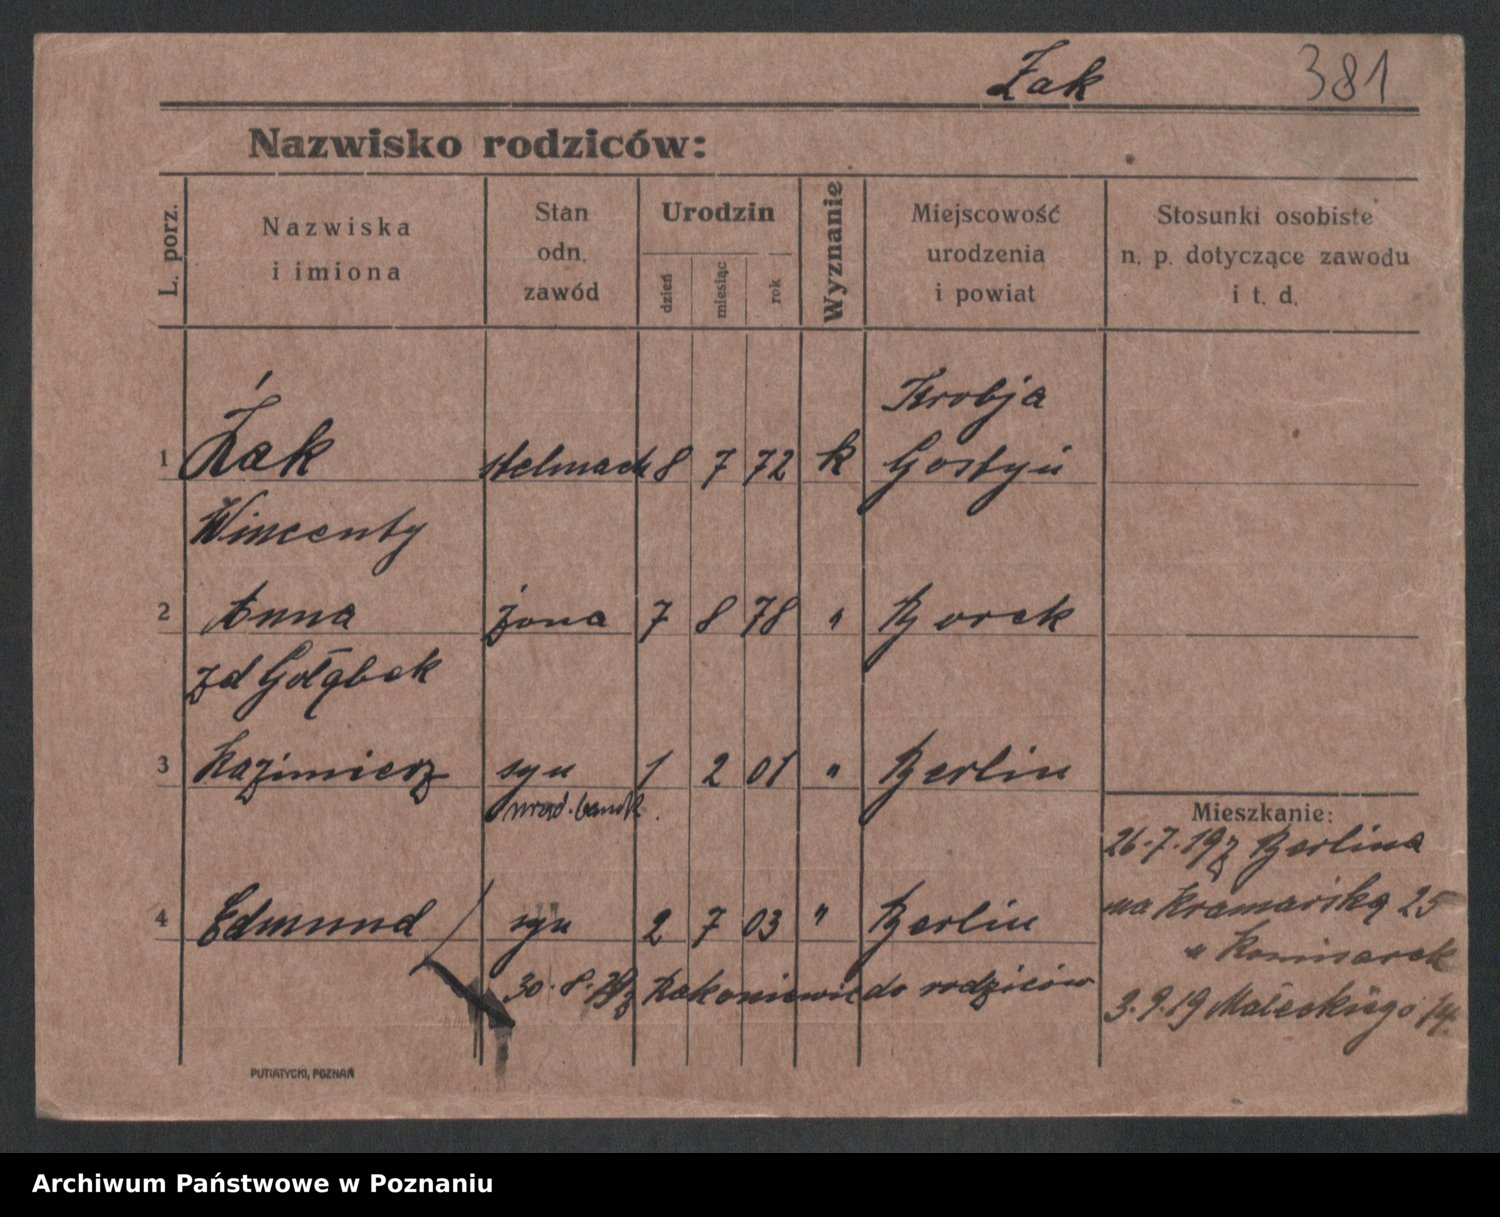 Żak 381
Nazwisko rodziców:
L. porz.
Nazwiska
i imiona
Stan
odn.
zawód
Urodzin
dzień
miesiąc
rok
Wyznanie
Miejscowość
urodzenia
i powiat
Stosunki osobiste
n. p. dotyczące zawodu
i t. d.
Krobja
1 Żak stelmach 8 7 72 k Gostyń
Wincenty
2 Anna żona 7 8 78 " Borek
zd Gołąbek
3 Kazimierz syn 1 2 01 " Berlin
urzęd. bank.
Mieszkanie:
26.7.19 z Berlina
na Kramarską 25
4 Edmund syn 2 7 03 " Berlin
u Komisarek
30.8. z Rakoniewic do rodziców
3.9.19 Małeckiego
PUTIATYCKI, POZNAŃ
Archiwum Państwowe w Poznaniu